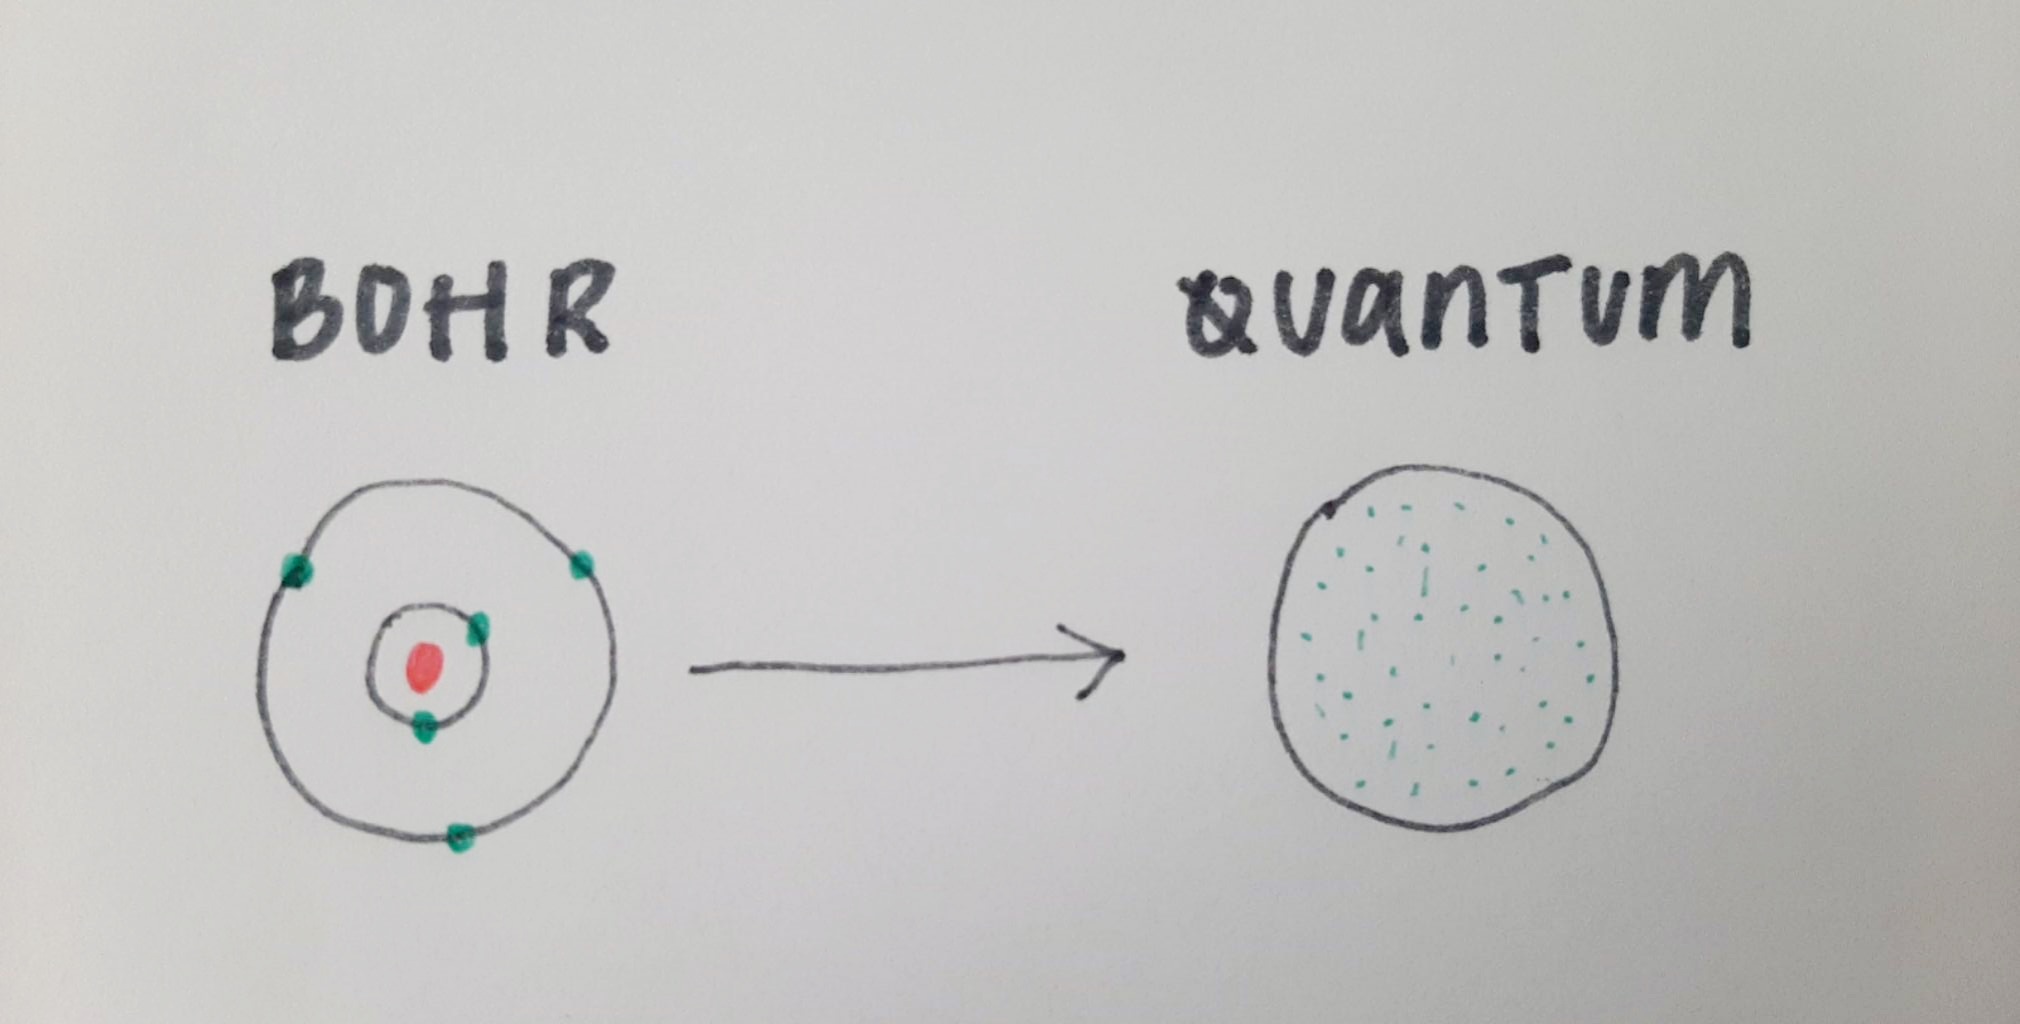 BOHR QUanTum